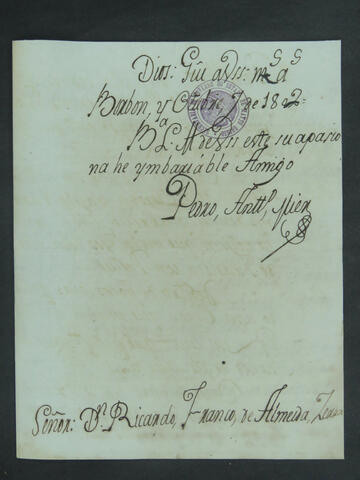 Dios: Gūe a Vss: mˢ aˢ
Borbon, y Octubre de 1802
B L M de Vss este su apasio
na he ymbariable Amigo
Pedro, Anttº, Mier
Señor: Dⁿ Ricardo, Franco, de Almeida,